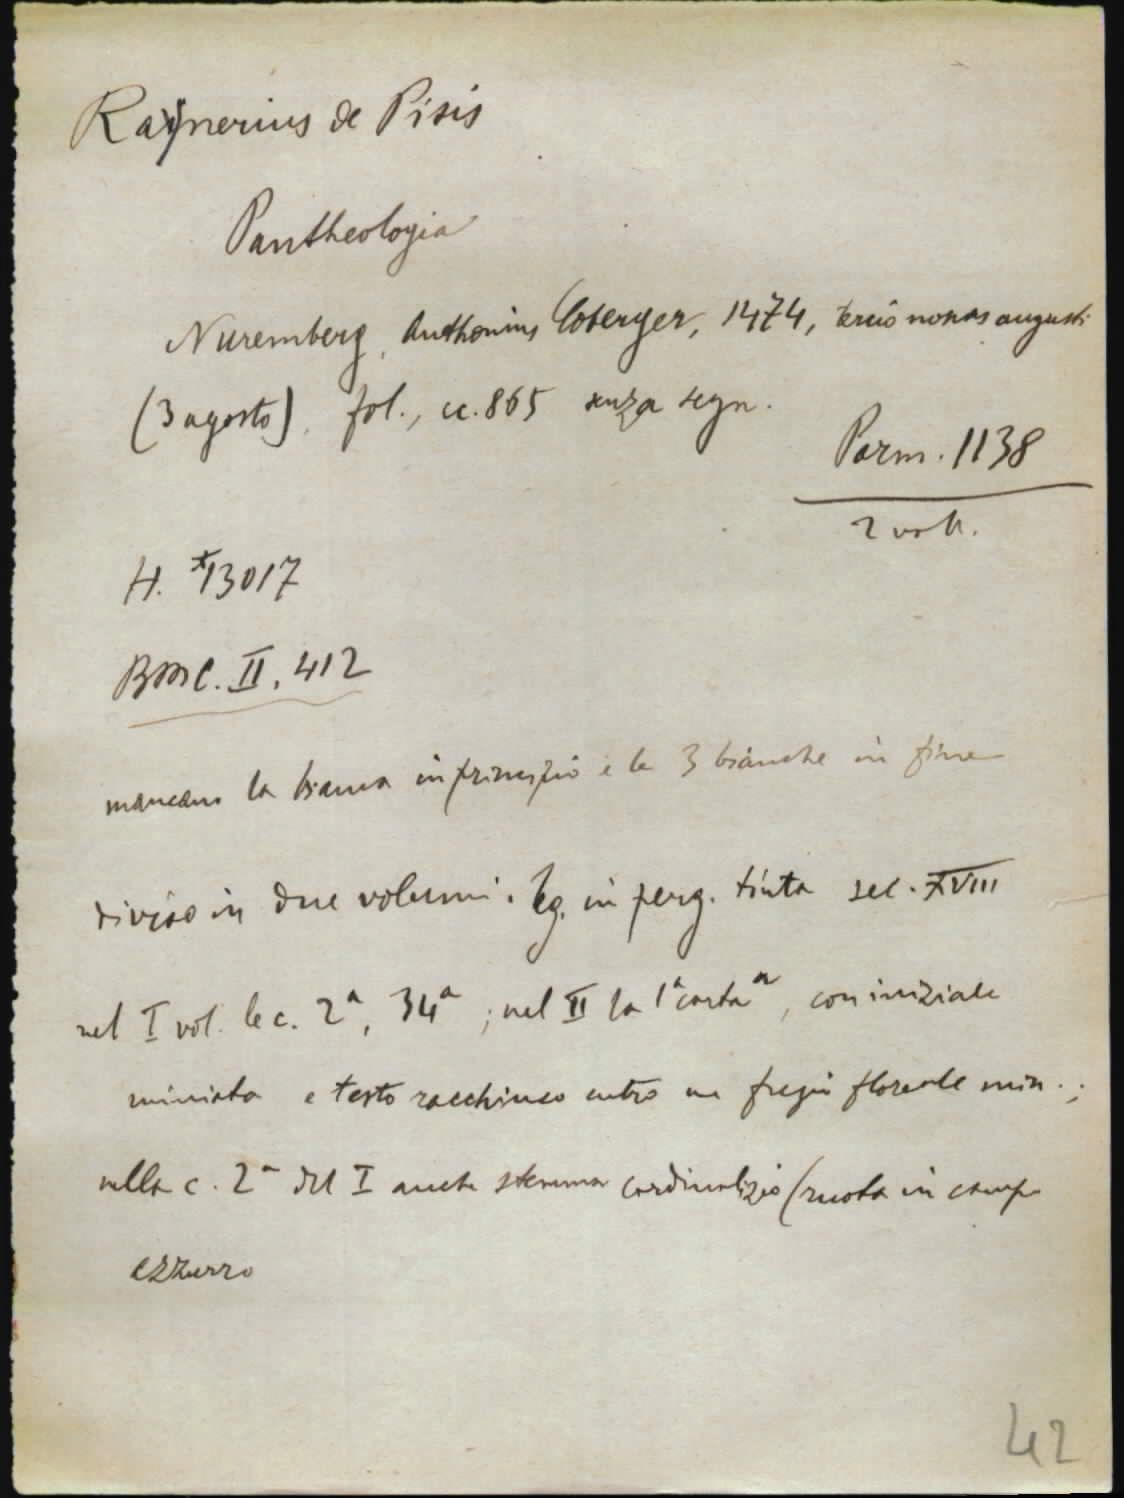 Raynerius de Pisis
Pantheologia
Nuremberg, Anthonius Coberger, 1474, tercio nonas augusti
(3 agosto). fol., cc. 865 senza segn.
Parm. 1138
2 voll.
H. *13017
BMC. II. 412
mancano la bianca in principio e le 3 bianche in fine
diviso in due volumi. leg. in perg. tinta sec. XVIII
nel I vol. le c. 2ª, 34ª; nel II la 1ª carta, con iniziale
miniata e testo racchiuso entro un fregio floreale min.;
nella c. 2ª del I anche stemma cardinalizio (ruota in campo
azzurro
42